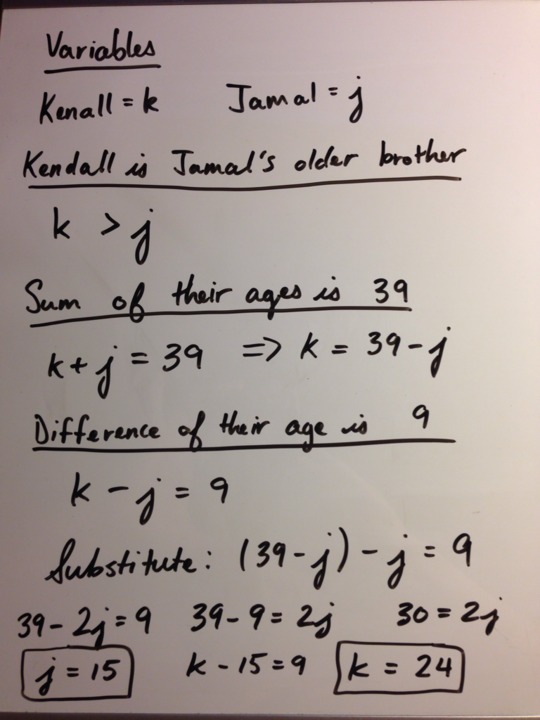 Variables
Kenall = k Jamal = j
Kendall is Jamal's older brother
k > j
Sum of their ages is 39
k + j = 39 => k = 39 - j
Difference of their age is 9
k - j = 9
Substitute: (39 - j) - j = 9
39 - 2j = 9 39 - 9 = 2j 30 = 2j
j = 15 k - 15 = 9 k = 24